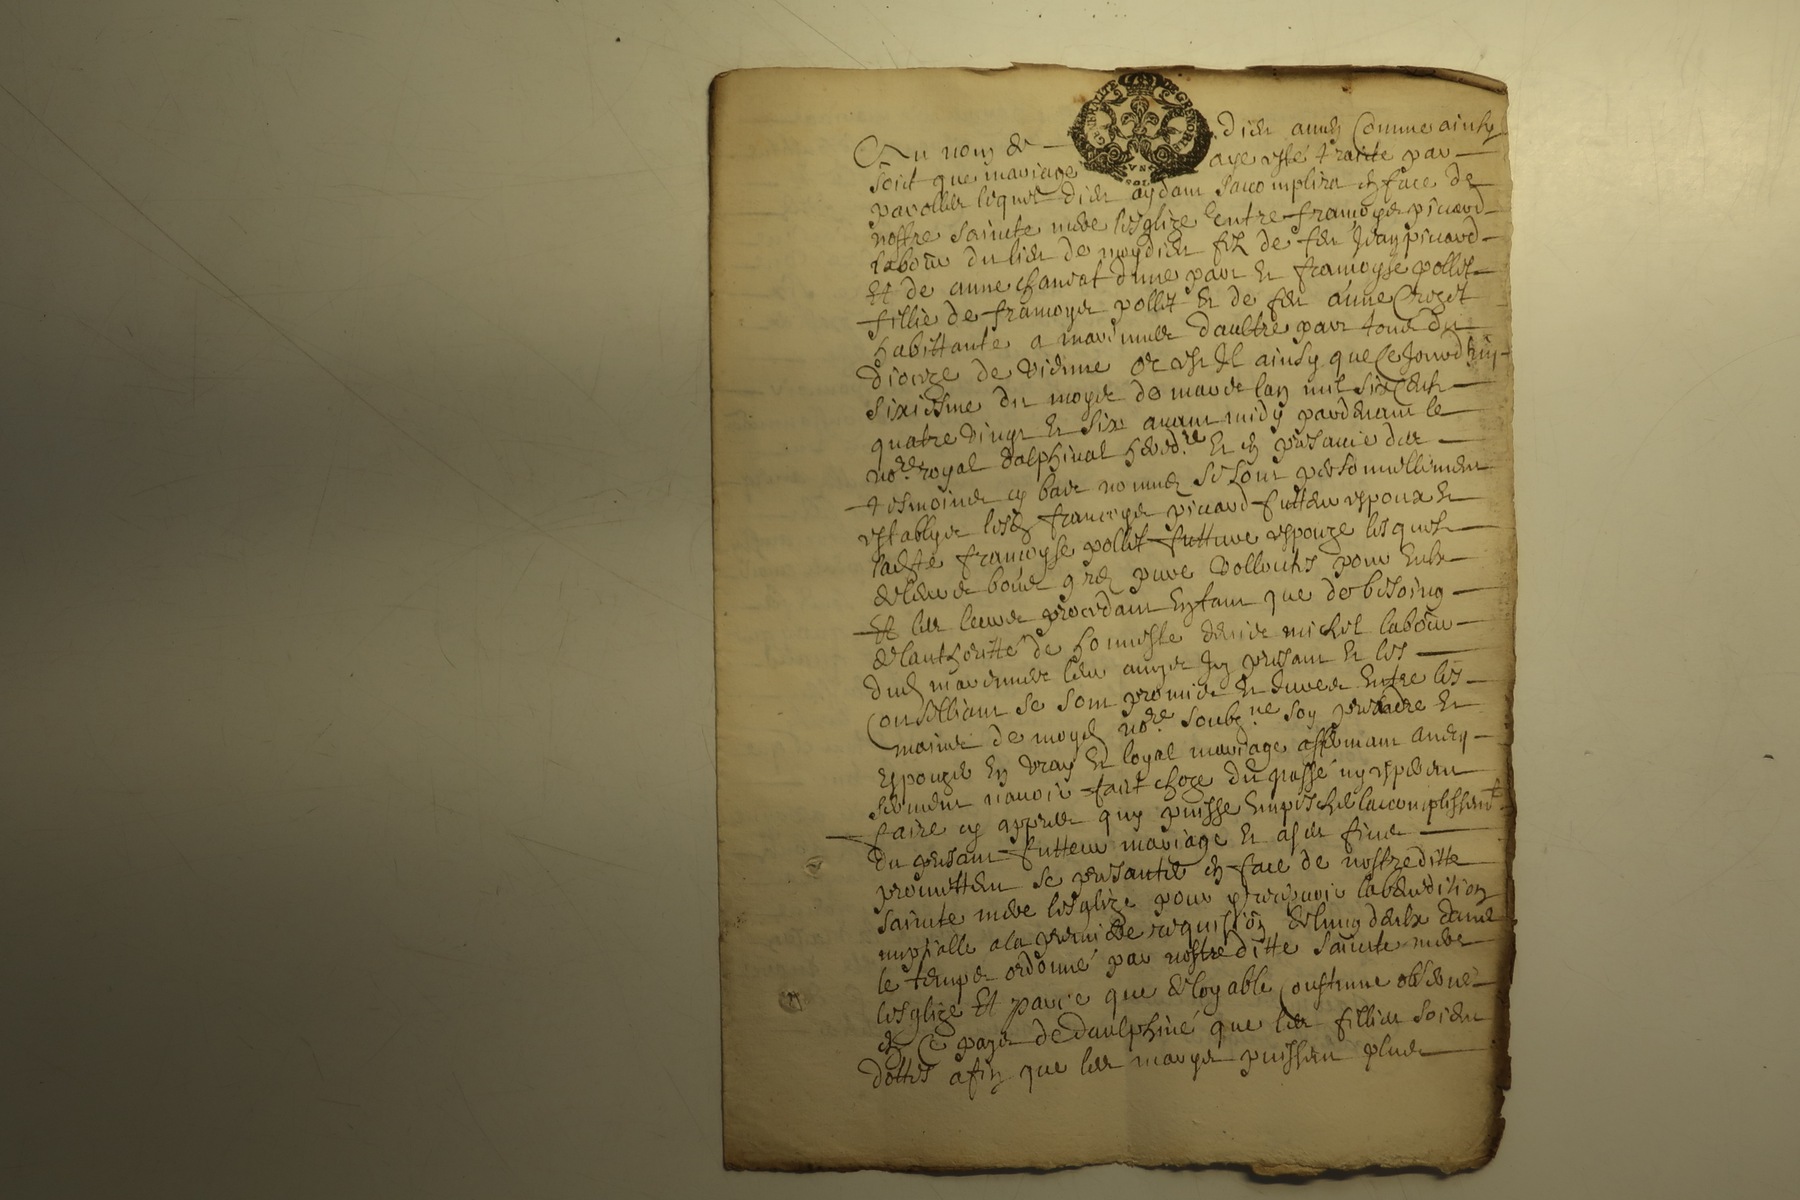 GENERALITE DE GRENOBLE
Au nom de dieu amen Comme ainsy
soict que mariage aye esté traitté par
parolles lequel dieu aydant saccomplira en face de
nostre saincte mere lesglize Entre françoys picard
labour du lieu de moydieu filz de feu Jean picard
Et de anne chavat dune part et françoyse pollet
fillie de françoys pollet et de feu anne
habittante a daultre part tous du
dioceze de vienne Or est Il ainsy que Ce Jourdhuy
sixiesme du moys de mars lan mil six Cents
quatre vingt et six avant midy pardevant le
nore royal dalphinal hered.re et en presance des
tesmoings cy bas nommez se sont personnellement
establys lesd françoys picard futteur espoux et
ladte françoyse pollet futture espouze lesquels
de leurs bons grez pure vollonté pour Eulx
Et les leurs procedant Ensant que de besoing
de lauthoritté de honneste michel labour
dud leur amys Icy presant et les
Conseilliant se sont promis et Jures Entre les
mains de moyd nore soubz.ne soy prandre et
Espouzer En vray et loyal mariage affermant
serment navoir faict choze du passé ny esperent
faire cy appres quy puisse Empescher laccomplissemt
du presant futteur mariage et a ses fins
promettent se presanter en face de nostreditte
saincte mere lesglize pour percepvoir la benedition
nuptialle a la premiere requisition de lung deulx dans
le temps ordonné par nostreditte saincte mere
lesglize Et parce que de loyable Coustume observée
en Ce pays de daulphiné que les fillies soient
dottés afin que les maryes puissent plus